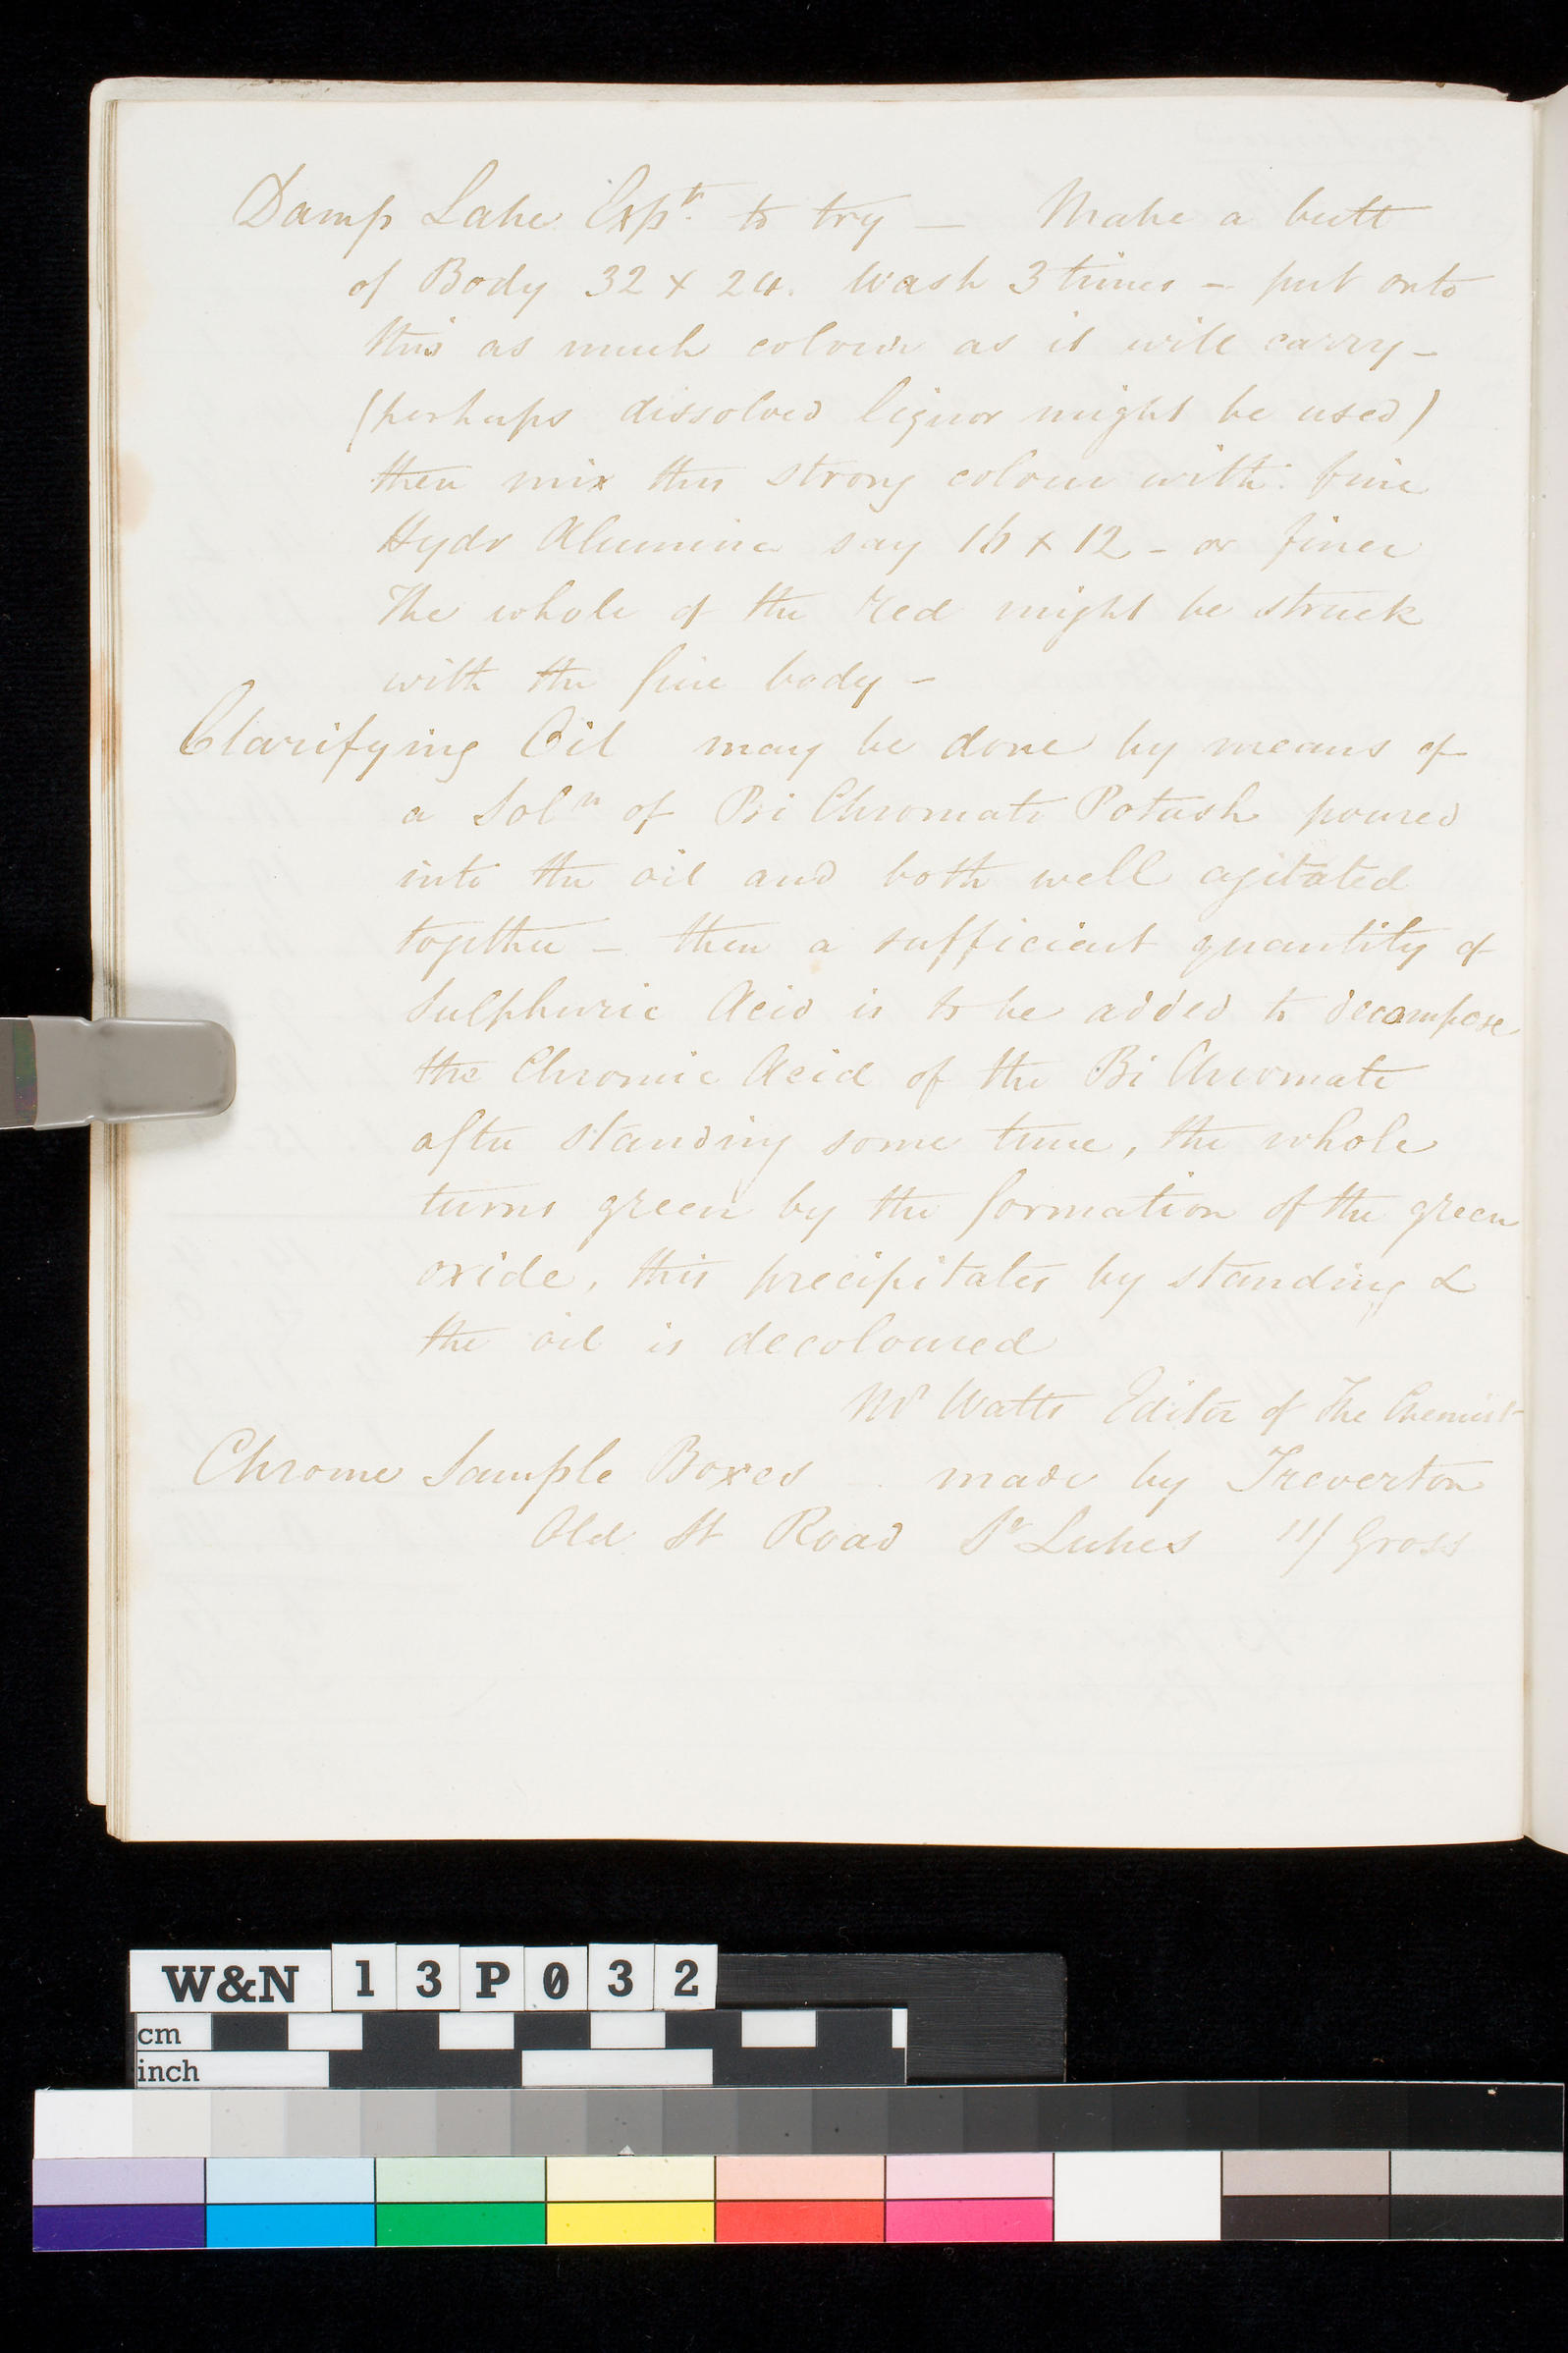 Damp Lake Expt. to try — Make a butt
of Body 32 x 24. Wash 3 times – put onto
this as much colour as it will carry –
(perhaps dissolved liquor might be used)
then mix this strong colour with fine
Hydr Alumina say 16 x 12 – or finer
The whole of the red might be struck
with the fine body –
Clarifying Oil may be done by means of
a Soln of Bi Chromate Potash poured
into the oil and both well agitated
together – then a sufficient quantity of
Sulphuric Acid is to be added to decompose
the Chromic Acid of the Bi Chromate
after standing some time, the whole
turns green by the formation of the green
oxide, this precipitates by standing &
the oil is decoloured
Mr Watts Editor of The Chemist
Chrome Sample Boxes – made by Treverton
Old St Road St Lukes 11/ Gross
W&N 13P032
cm
inch